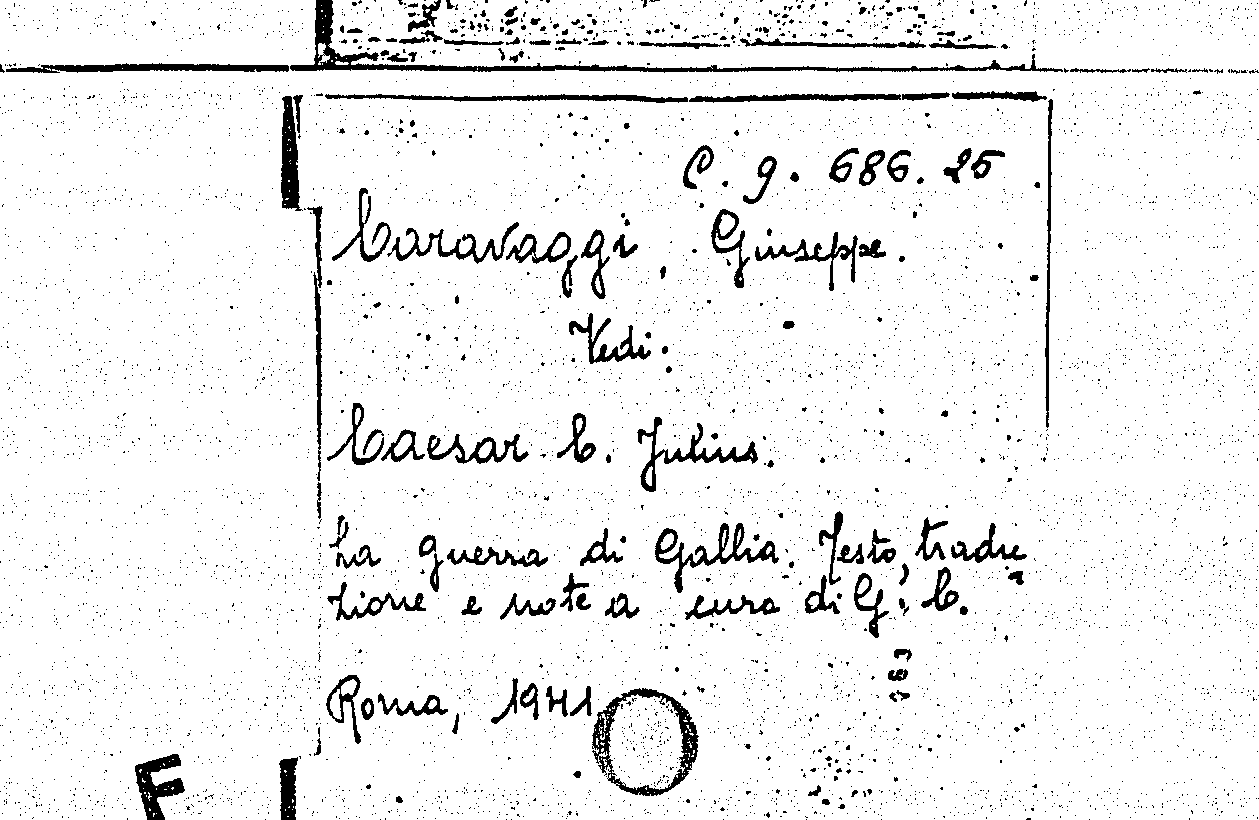 C. 9. 686. 25
Caravaggi, Giuseppe.
Vedi:
Caesar C. Julius.
La guerra di Gallia. Testo, tradu
zione e note a cura di G. C.
Roma, 1941
F